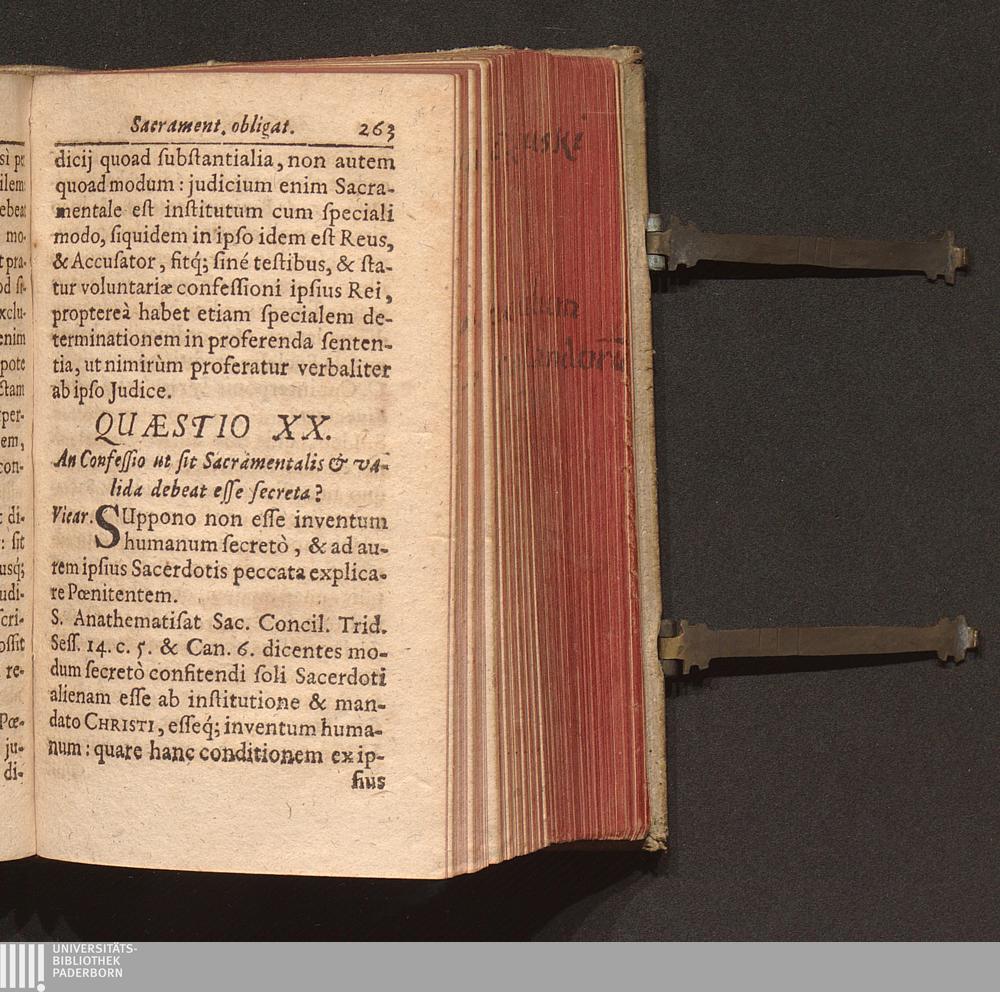 Sacrament. obligat. 263
dicij quoad ſubſtantialia, non autem
quoad modum: judicium enim Sacra-
mentale eſt inſtitutum cum ſpeciali
modo, ſiquidem in ipſo idem eſt Reus,
& Accuſator, fitq́; ſiné teſtibus, & ſta-
tur voluntariæ confeſſioni ipſius Rei,
proptereà habet etiam ſpecialem de-
terminationem in proferenda ſenten-
tia, ut nimirùm proferatur verbaliter
ab ipſo Judice.
QUÆSTIO XX.
An Confeſſio ut ſit Sacramentalis & va-
lida debeat eſſe ſecreta?
Vicar. SUppono non eſſe inventum
humanum ſecretò, & ad au-
rem ipſius Sacerdotis peccata explica-
re Pœnitentem.
S. Anathematiſat Sac. Concil. Trid.
Seſſ. 14. c. 5. & Can. 6. dicentes mo-
dum ſecretò confitendi ſoli Sacerdoti
alienam eſſe ab inſtitutione & man-
dato CHRISTI, eſſeq́; inventum huma-
num: quare hanc conditionem ex ip-
ſius
UNIVERSITÄTS-
BIBLIOTHEK
PADERBORN